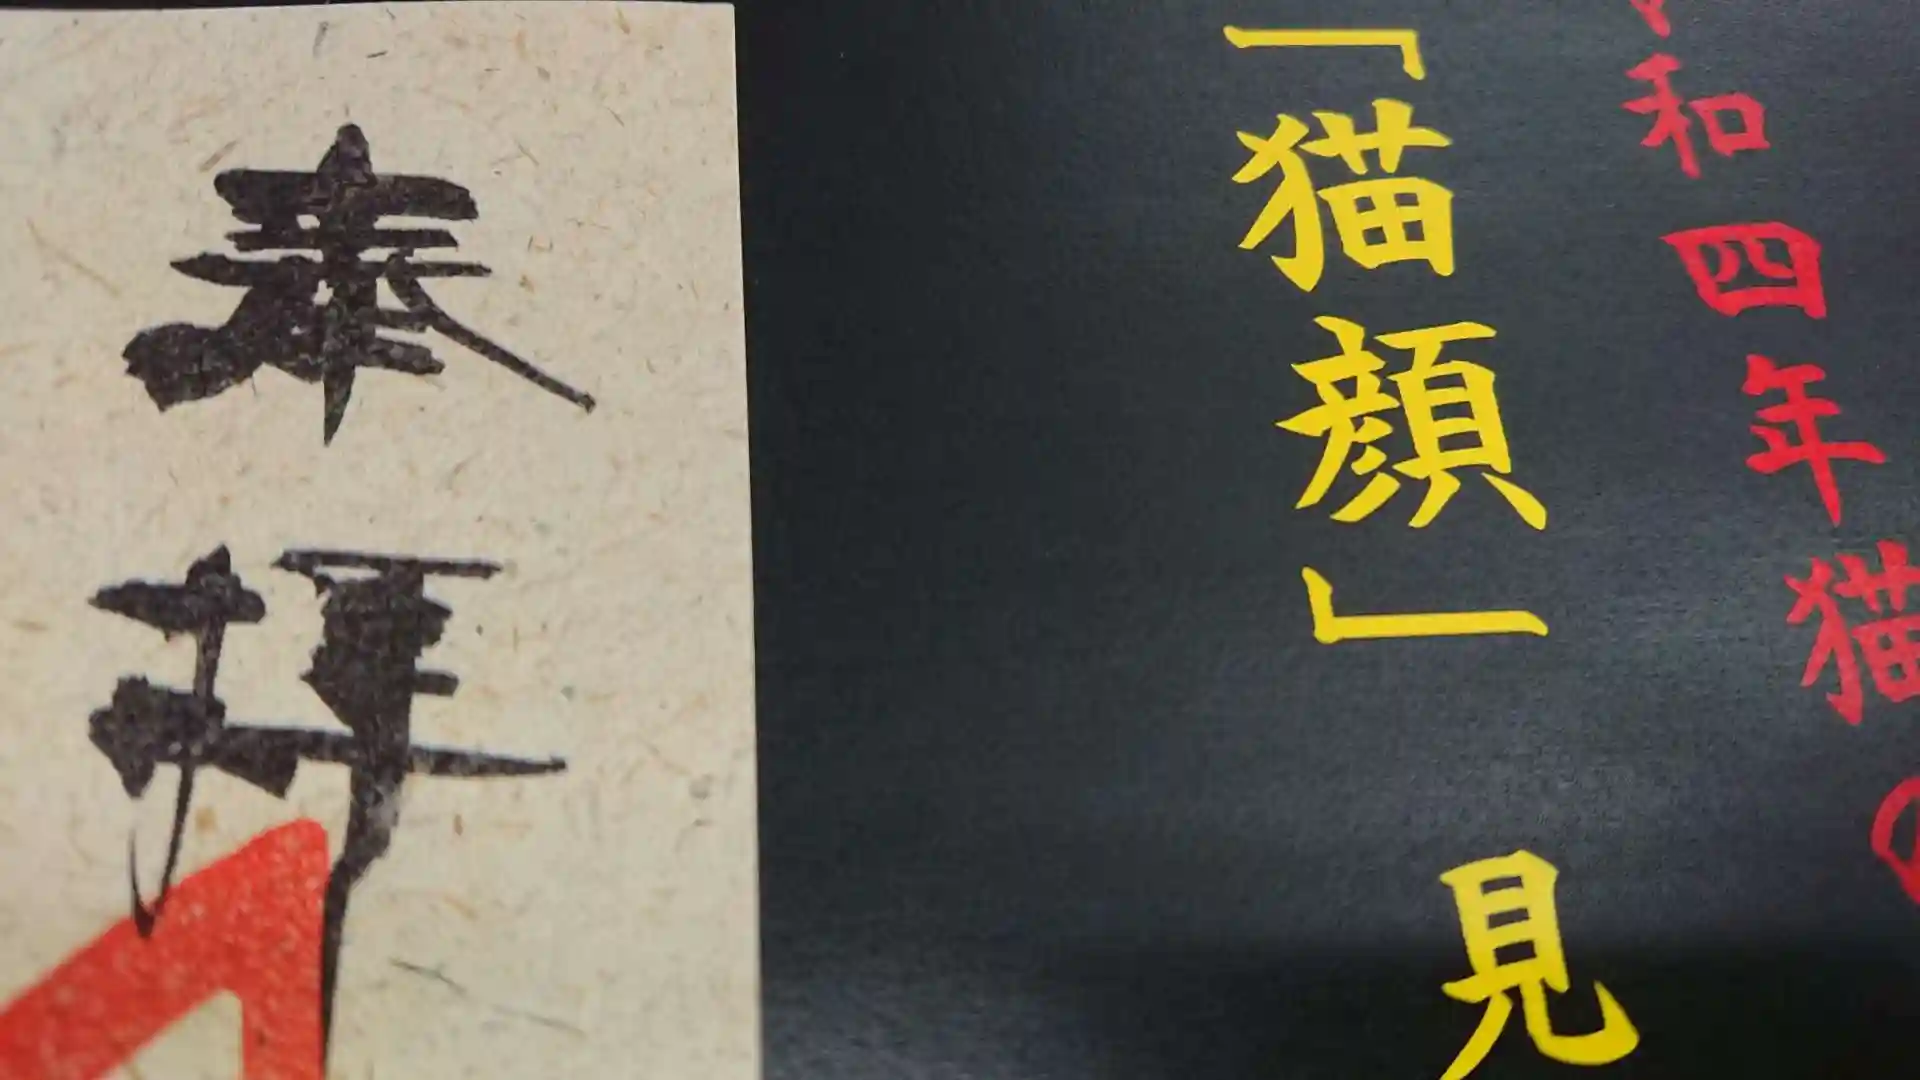 和四年猫の
「猫顔」見
奉拝